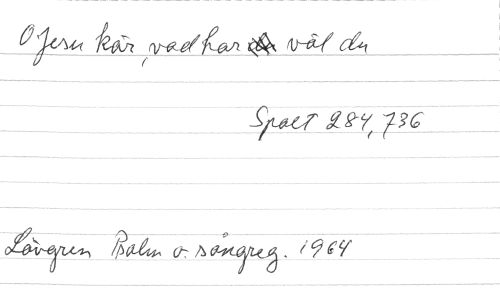 O Jesu kär, vad har väl du
Spalt 284, 736
Lövgren Psalm o. sångreg. 1964